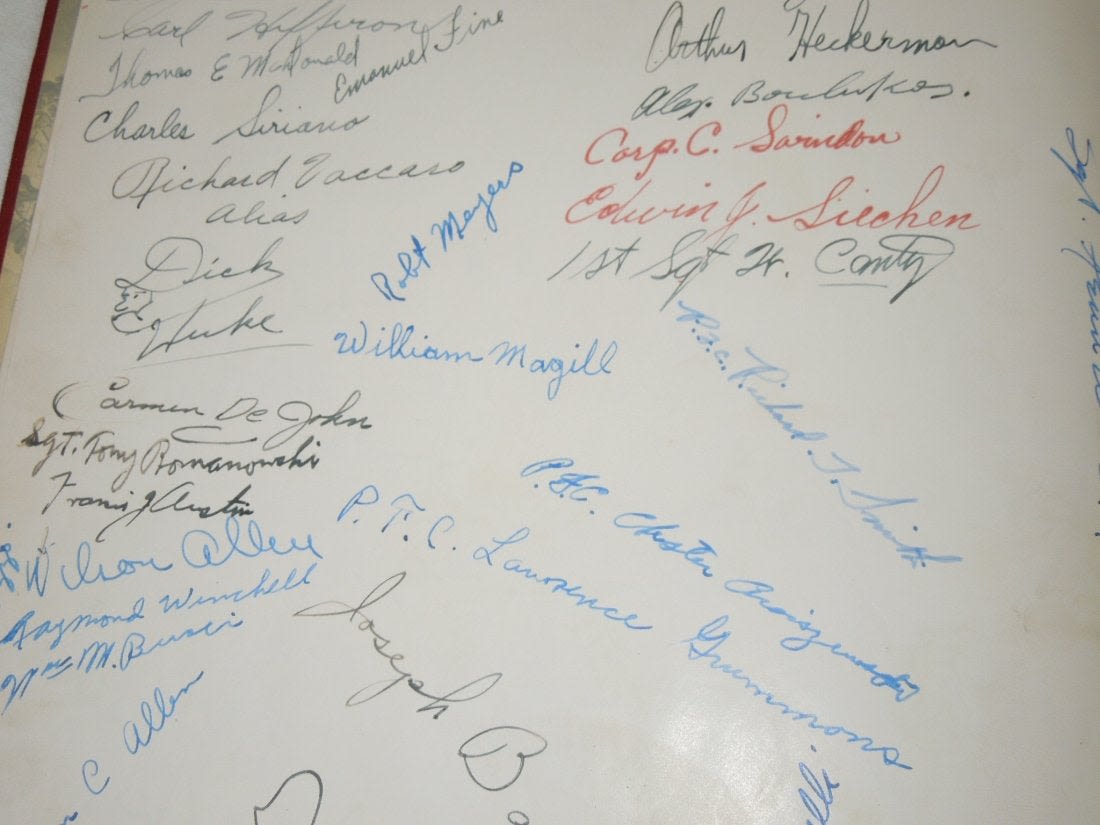 Carl Hefferon
Thomas E McDonald
Emanuel Fine
Charles Siriano
Richard Vaccaso
alias
Dick
Duke
Robt Meyers
William Magill
Carmen De John
Sgt. Tony Romanowski
Francis J Austin
Wilson Allen
Raymond Winchell
Wm M. Busci
C Allen
Arthur Heckerman
Alex. Boulukos.
Corp. C. Sarindon
Edwin J. Siechen
1st Sgt W. Canty
P.F.C. Richard J. Smith.
P.F.C. Chester
P.F.C. Lawrence Grummons
Joseph
Sgt.